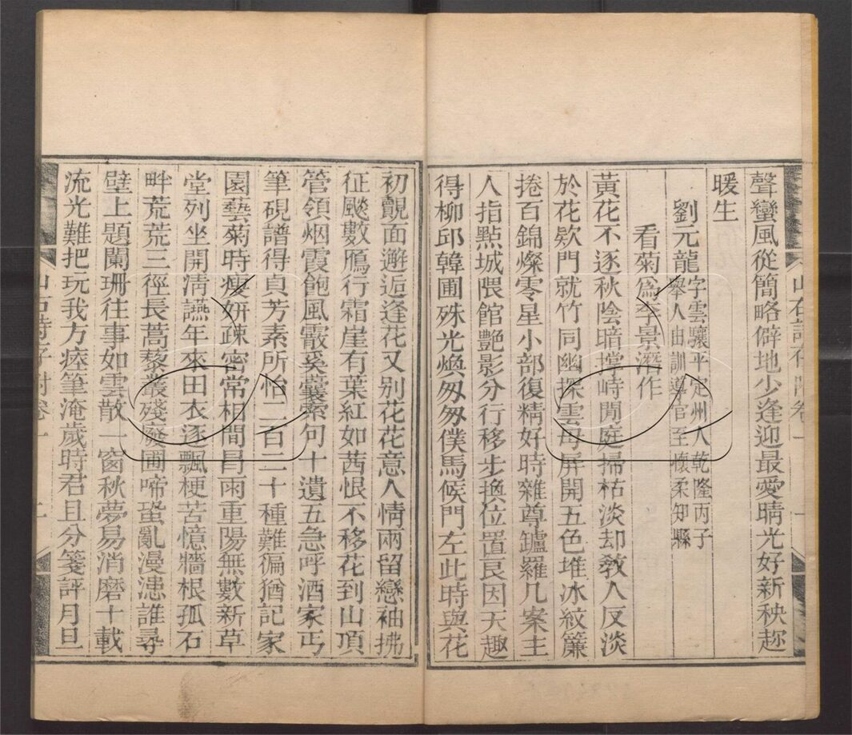 聲蠻風從簡略僻地少逢迎最愛晴光好新秧趂
暖生
劉元龍字雲驤平定州人乾隆丙子
舉人由訓導官至懷柔知縣
看菊爲李景濳作
黃花不逐秋陰暗擋峙閒庭掃枯淡却敎人反淡
於花欵門就竹同幽探雲母屏開五色堆冰紋簾
捲百錦燦零星小部復精好時雜尊鑪羅几案主
人指點城隈館艷影分行移步換位置良因天趣
得柳邱韓圃殊光煥匆匆僕馬候門左此時與花
山右詩存附卷一
初覿面邂逅逢花又別花花意人情兩留戀袖拂
征颷數鴈行霜崖有葉紅如茜恨不移花到山頂
管領烟霞飽風霰奚囊索句十遺五急呼酒家丐
筆硯譜得貞芳素所怡一百二十種難徧猶記家
園藝菊時瘦姸疎密常相間冐雨重陽無數新草
堂列坐開淸讌年來田衣逐飄梗苦憶牆根孤石
畔荒荒三徑長蒿藜叢殘廢圃啼螀亂漫漶誰尋
壁上題闌珊往事如雲散一窗秋夢易消磨十載
流光難把玩我方瘞筆淹歲時君且分箋評月旦
山右詩存附卷一
二